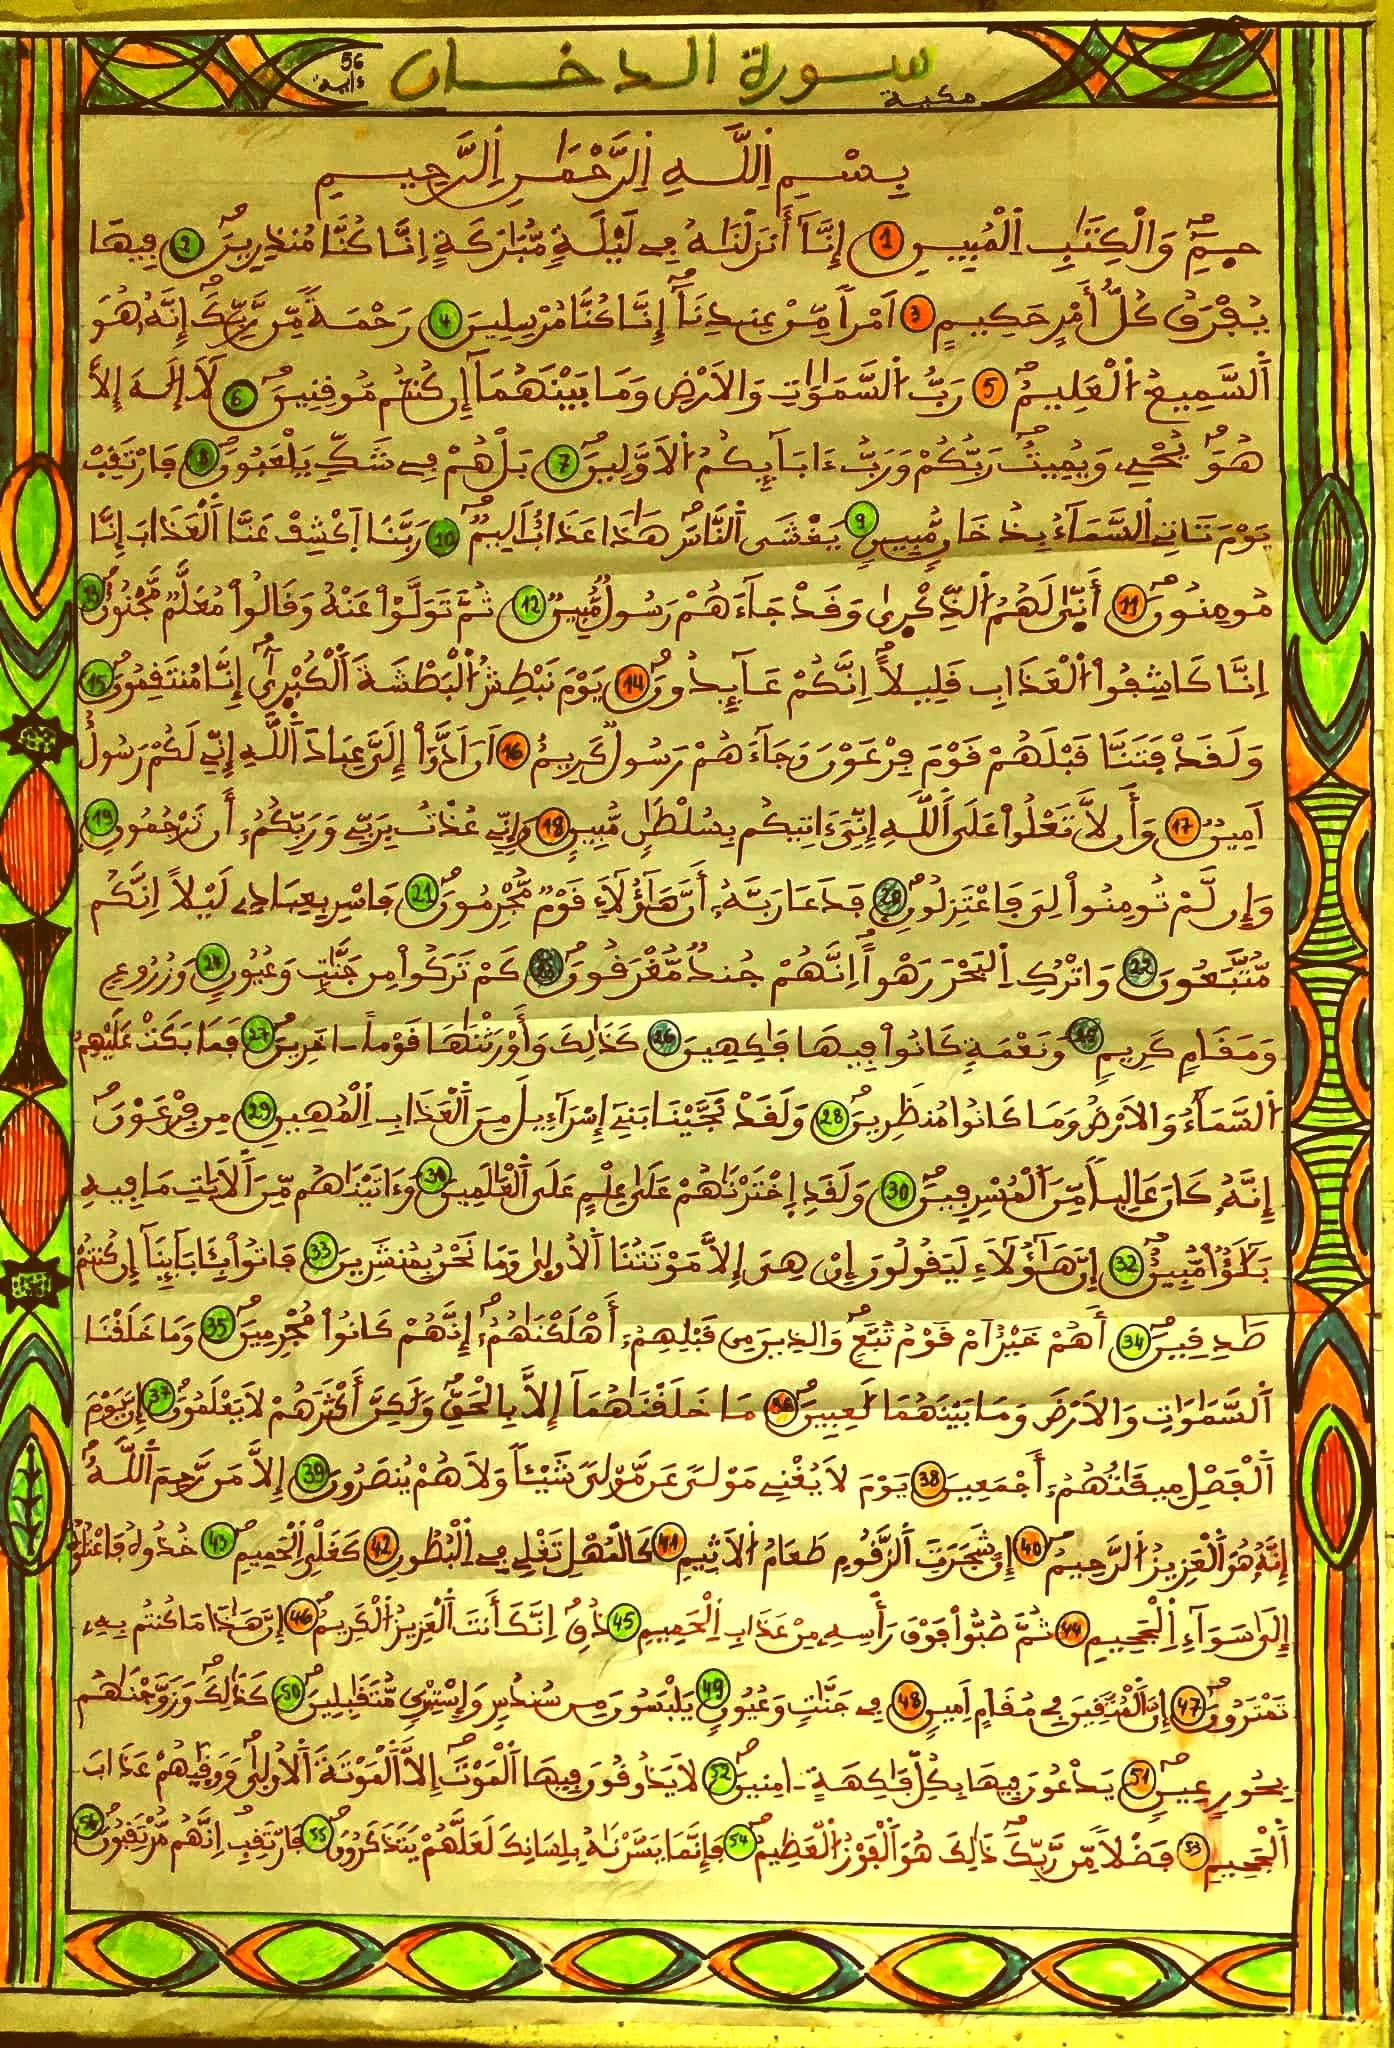 سورة الدخان
مكية
56 ءاية
بِسْمِ اِللَّهِ اِلرَّحْمَٰنِ اِلرَّحِيمِ
حمِٓ وَالْكِتَٰبِ اِلْمُبِينِ 1 إِنَّآ أَنزَلْنَٰهُ فِے لَيْلَةٖ مُّبَٰرَكَةٍ اِنَّا كُنَّا مُنذِرِينَ 2 فِيهَا
يُفْرَقُ كُلُّ أَمْرٍ حَكِيمٍ 3 اَمْراٗ مِّنْ عِندِنَآ إِنَّا كُنَّا مُرْسِلِينَ 4 رَحْمَةٗ مِّن رَّبِّكَ إِنَّهُۥ هُوَ
اَلسَّمِيعُ اُلْعَلِيمُ 5 رَبُّ اُلسَّمَٰوَٰتِ وَالَارْضِ وَمَا بَيْنَهُمَآ إِن كُنتُم مُّوقِنِينَ 6 لَآ إِلَٰهَ إِلَّا
هُوَ يُحْيِۦ وَيُمِيتُ رَبُّكُمْ وَرَبُّ ءَابَآئِكُمُ اُلَاوَّلِينَ 7 بَلْ هُمْ فِے شَكّٖ يَلْعَبُونَ 8 فَارْتَقِبْ
يَوْمَ تَاتِے اِلسَّمَآءُ بِدُخَانٖ مُّبِينٖ 9 يَغْشَى اَلنَّاسَ هَٰذَا عَذَابٌ اَلِيمٌ 10 رَبَّنَا اَكْشِفْ عَنَّا اَلْعَذَابَ إِنَّا
مُومِنُونَ 11 أَنّٰى لَهُمُ اُلذِّكْر۪ىٰ وَقَدْ جَآءَهُمْ رَسُولٞ مُّبِينٞ 12 ثُمَّ تَوَلَّوْاْ عَنْهُ وَقَالُواْ مُعَلَّمٞ مَّجْنُونٌ 13
اِنَّا كَاشِفُواْ اُلْعَذَابِ قَلِيلاً اِنَّكُمْ عَآئِدُونَ 14 يَوْمَ نَبْطِشُ اُلْبَطْشَةَ اَلْكُبْر۪ىٰٓ إِنَّا مُنتَقِمُونَ 15
وَلَقَدْ فَتَنَّا قَبْلَهُمْ قَوْمَ فِرْعَوْنَ وَجَآءَهُمْ رَسُولٞ كَرِيمٌ 16 اَنَ اَدُّوٓاْ إِلَيَّ عِبَادَ اَللَّهِ إِنِّے لَكُمْ رَسُولٌ
اَمِينٞ 17 وَأَن لَّا تَعْلُواْ عَلَى اَللَّهِ إِنِّيَ ءَاتِيكُم بِسُلْطَٰنٖ مُّبِينٖ 18 وَإِنِّے عُذْتُ بِرَبِّے وَرَبِّكُمُۥٓ أَن تَرْجُمُونِ 19
وَإِن لَّمْ تُومِنُواْ لِيَ فَاعْتَزِلُونِ 20 فَدَعَا رَبَّهُۥٓ أَنَّ هَٰٓؤُلَآءِ قَوْمٞ مُّجْرِمُونَ 21 فَاسْرِ بِعِبَادِے لَيْلاً اِنَّكُم
مُّتَّبَعُونَ 22 وَاتْرُكِ اِلْبَحْرَ رَهْواً اِنَّهُمْ جُندٞ مُّغْرَقُونَ 23 كَمْ تَرَكُواْ مِن جَنَّٰتٖ وَعُيُونٖ 24 وَزُرُوعٖ
وَمَقَامٖ كَرِيمٖ 25 وَنَعْمَةٖ كَانُواْ فِيهَا فَٰكِهِينَ 26 كَذَٰلِكَ وَأَوْرَثْنَٰهَا قَوْماً ـ اخَرِينَ 27 فَمَا بَكَتْ عَلَيْهِمُ
اُلسَّمَآءُ وَالَارْضُ وَمَا كَانُواْ مُنظَرِينَ 28 وَلَقَدْ نَجَّيْنَا بَنِےٓ إِسْرَآءِيلَ مِنَ اَلْعَذَابِ اِلْمُهِينِ 29 مِن فِرْعَوْنَ
إِنَّهُۥ كَانَ عَالِياٗ مِّنَ اَلْمُسْرِفِينَ 30 وَلَقَدِ اِخْتَرْنَٰهُمْ عَلَىٰ عِلْمٍ عَلَى اَلْعَٰلَمِينَ 31 وَءَاتَيْنَٰهُم مِّنَ اَلَايَٰتِ مَا فِيهِ
بَلَٰٓؤٌاْ مُّبِينٌ 32 إِنَّ هَٰٓؤُلَآءِ لَيَقُولُونَ إِنْ هِيَ إِلَّا مَوْتَتُنَا اَلُاول۪ىٰ وَمَا نَحْنُ بِمُنشَرِينَ 33 فَاتُواْ بِـَٔابَآئِنَآ إِن كُنتُمْ
صَٰدِقِينَ 34 أَهُمْ خَيْرٌ اَمْ قَوْمُ تُبَّعٖ وَالذِينَ مِن قَبْلِهِمُۥٓ أَهْلَكْنَٰهُمُۥٓ إِنَّهُمْ كَانُواْ مُجْرِمِينَ 35 وَمَا خَلَقْنَا
اَلسَّمَٰوَٰتِ وَالَارْضَ وَمَا بَيْنَهُمَا لَٰعِبِينَ 36 مَا خَلَقْنَٰهُمَآ إِلَّا بِالْحَقِّ وَلَٰكِنَّ أَكْثَرَهُمْ لَا يَعْلَمُونَ 37 إِنَّ يَوْمَ
اَلْفَصْلِ مِيقَٰتُهُمُۥٓ أَجْمَعِينَ 38 يَوْمَ لَا يُغْنِے مَوْلىً عَن مَّوْلىٗ شَيْـٔاٗ وَلَا هُمْ يُنصَرُونَ 39 إِلَّا مَن رَّحِمَ اَللَّهُ
إِنَّهُۥ هُوَ اَلْعَزِيزُ اُلرَّحِيمُ 40 إِنَّ شَجَرَتَ اَلزَّقُّومِ طَعَامُ اُلَاثِيمِ 41 كَالْمُهْلِ تَغْلِے فِے اِلْبُطُونِ 42 كَغَلْيِ اِلْحَمِيمِ 43 خُذُوهُ فَاعْتُلُوهُ
إِلَىٰ سَوَآءِ اِلْجَحِيمِ 44 ثُمَّ صُبُّواْ فَوْقَ رَأْسِهِۦ مِنْ عَذَابِ اِلْحَمِيمِ 45 ذُقِ اِنَّكَ أَنتَ اَلْعَزِيزُ اُلْكَرِيمُ 46 إِنَّ هَٰذَا مَا كُنتُم بِهِۦ
تَمْتَرُونَ 47 إِنَّ اَلْمُتَّقِينَ فِے مُقَامٍ اَمِينٖ 48 فِے جَنَّٰتٖ وَعُيُونٖ 49 يَلْبَسُونَ مِن سُندُسٖ وَإِسْتَبْرَقٖ مُّتَقَٰبِلِينَ 50 كَذَٰلِكَ وَزَوَّجْنَٰهُم
بِحُورٍ عِينٖ 51 يَدْعُونَ فِيهَا بِكُلِّ فَٰكِهَةٍ ـ امِنِينَ 52 لَا يَذُوقُونَ فِيهَا اَلْمَوْتَ إِلَّا اَلْمَوْتَةَ اَلُاول۪ىٰ وَوَق۪يٰهُمْ عَذَابَ
اَلْجَحِيمِ 53 فَضْلاٗ مِّن رَّبِّكَ ذَٰلِكَ هُوَ اَلْفَوْزُ اُلْعَظِيمُ 54 فَإِنَّمَا يَسَّرْنَٰهُ بِلِسَانِكَ لَعَلَّهُمْ يَتَذَكَّرُونَ 55 فَارْتَقِبِ اِنَّهُم مُّرْتَقِبُونَ 56